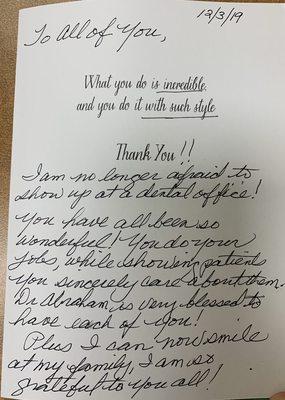 12/3/19
To All of You,
What you do is incredible,
and you do it with such style
Thank You!!
I am no longer afraid to
show up at a dental office!
You have all been so
wonderful! You do your
jobs, while showing patients
you sincerely care about them.
Dr Abraham is very blessed to
have each of you!
Plus I can now smile
at my family, I am so
grateful to you all!